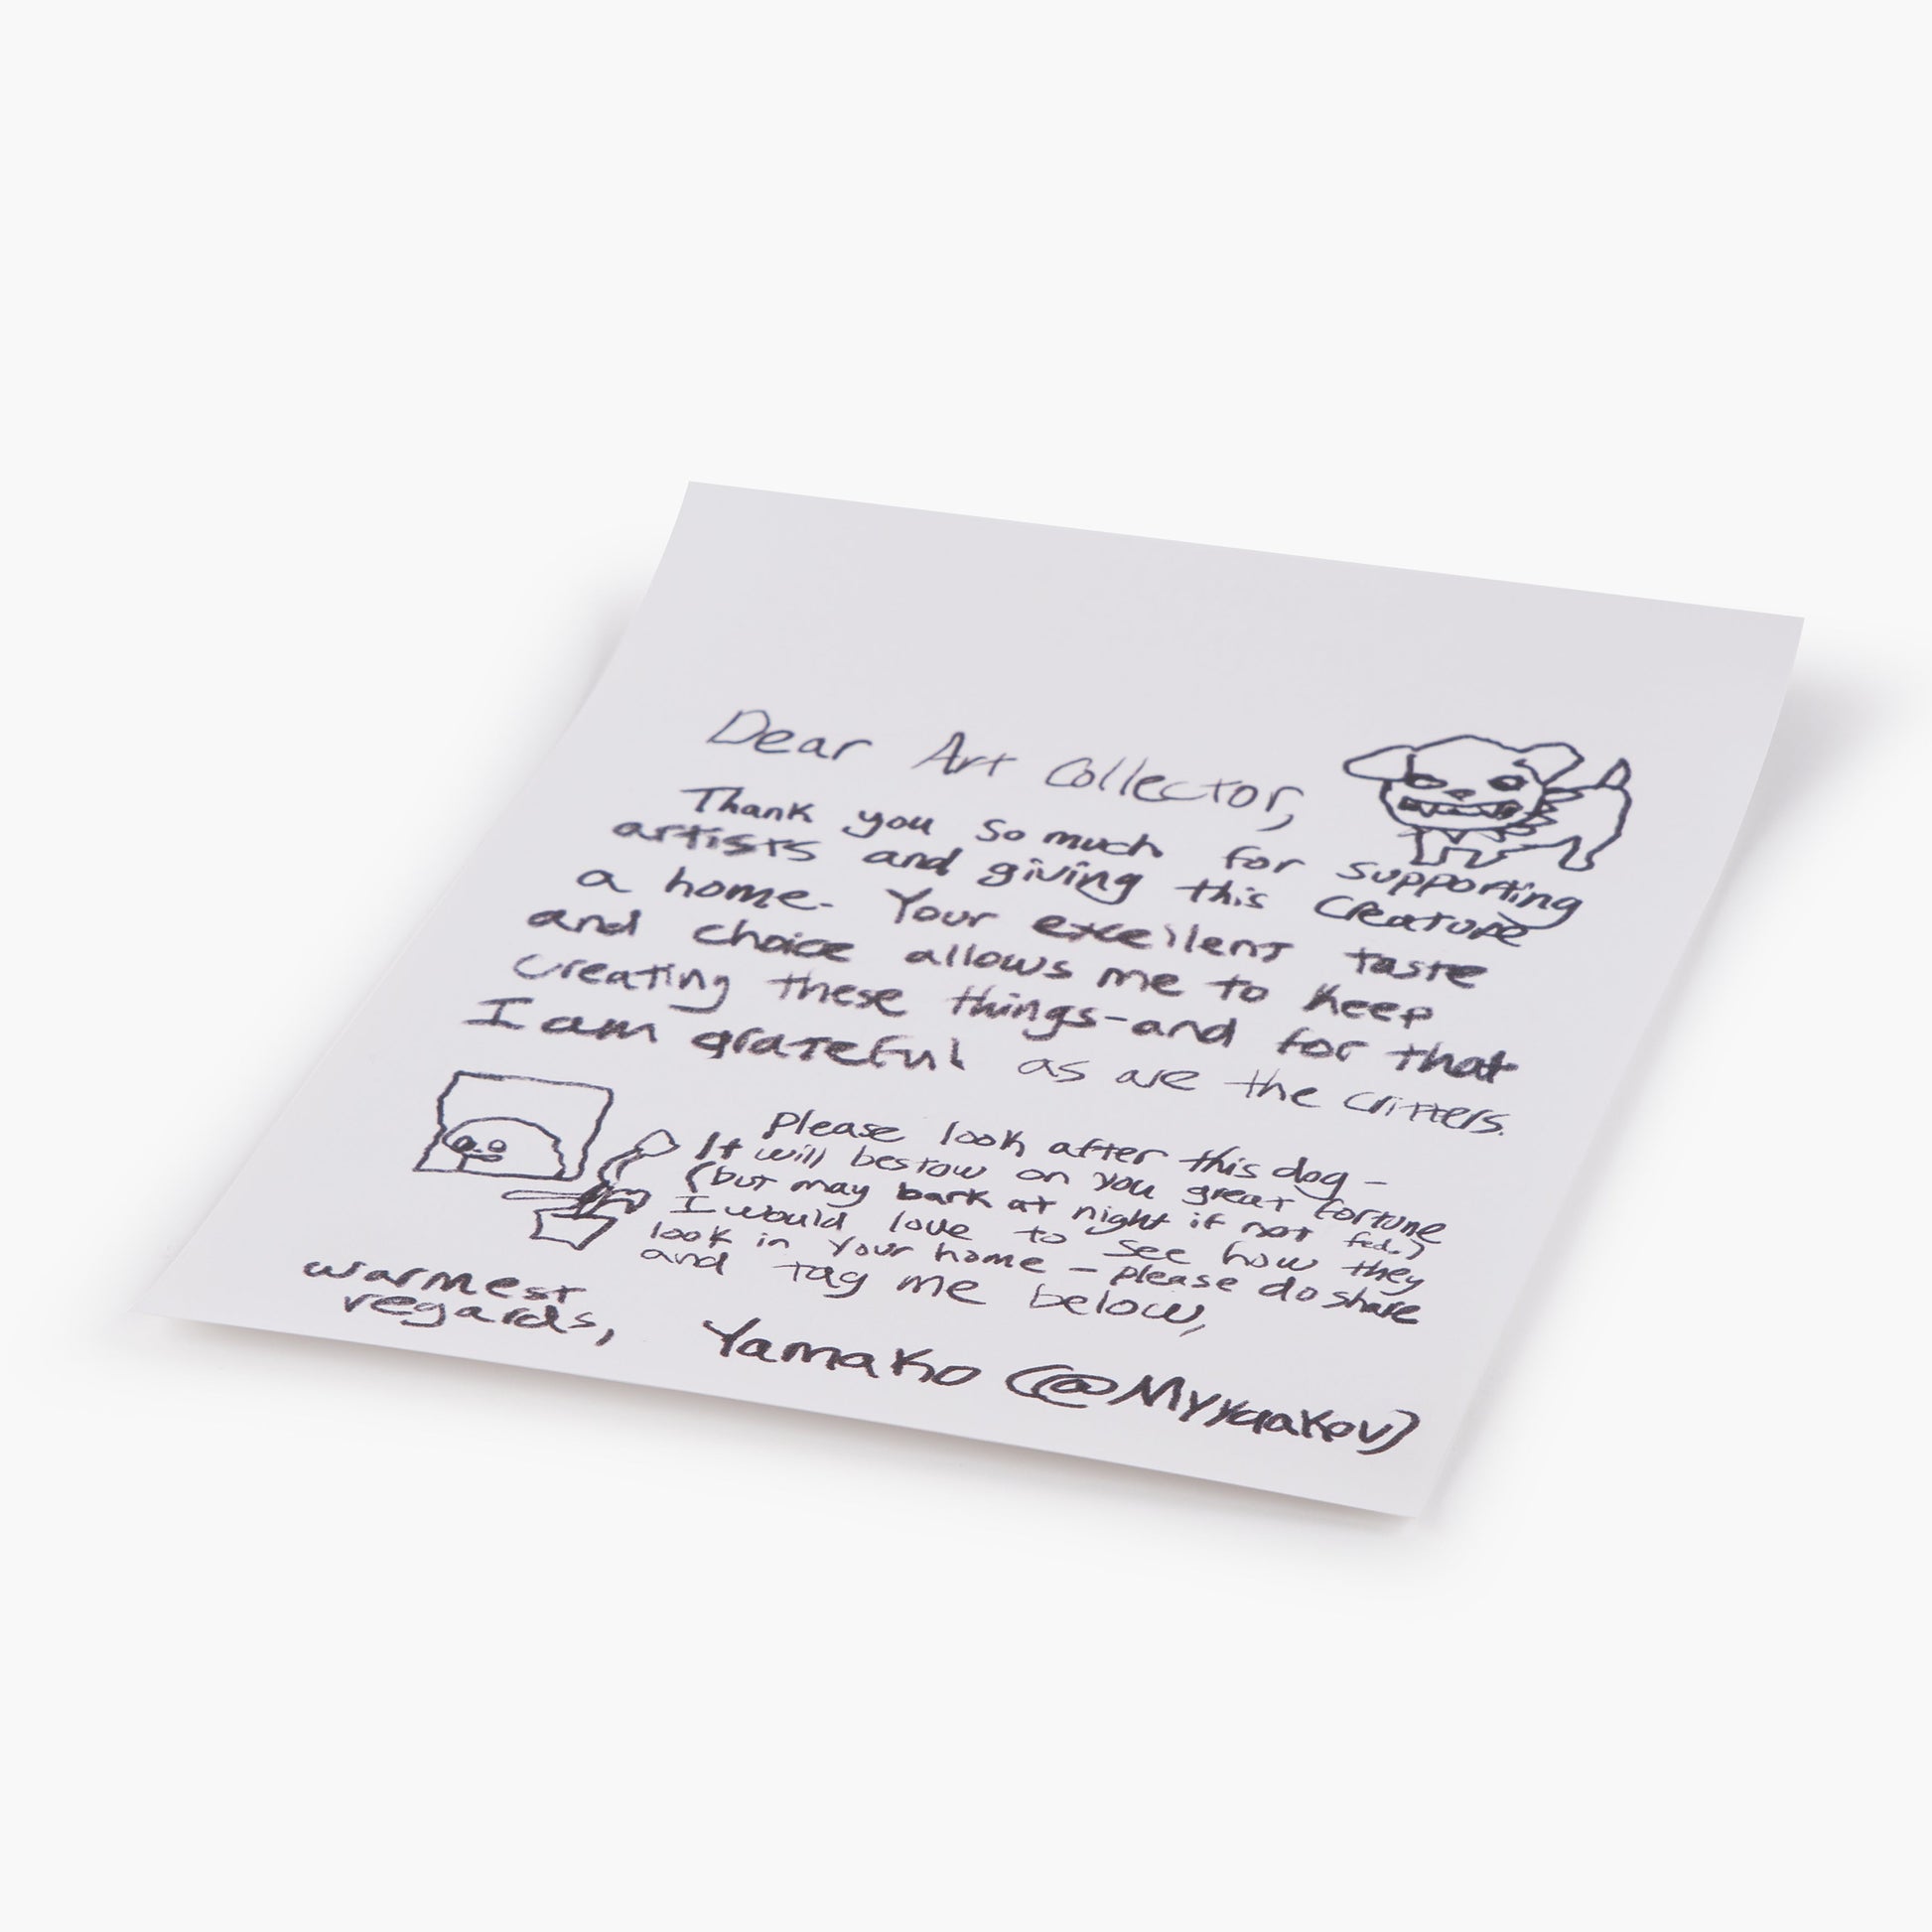 Dear Art Collector,
Thank you so much for supporting
artists and giving this Creature
a home. Your excellent taste
and choice allows me to keep
creating these things-and for that
I am grateful as are the critters.
Please look after this dog -
It will bestow on you great fortune
(but may bark at night if not fed.)
I would love to see how they
look in your home - please do share
and tag me below,
warmest
regards,
Yamako (@Myyaakov)